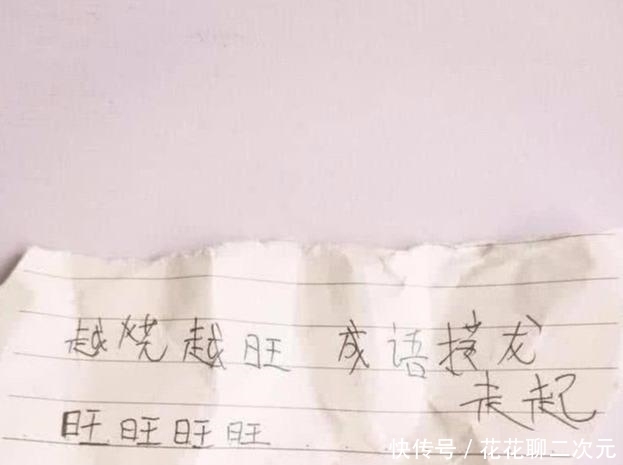 越烧越旺 成语接龙
走起
旺旺旺旺
快传号 / 花花聊二次元